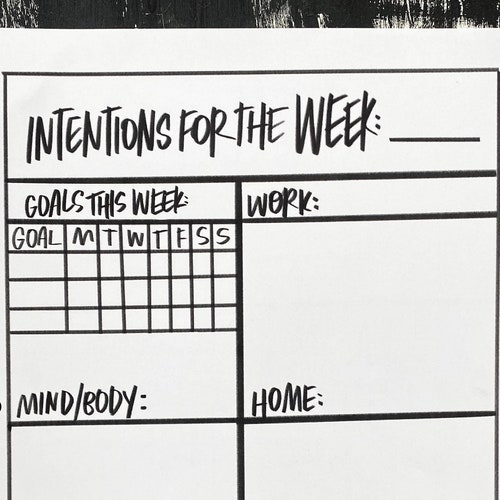 INTENTIONS FOR THE WEEK:
GOALS THIS WEEK:
WORK:
GOAL M T W T F S S
MIND/BODY:
HOME: